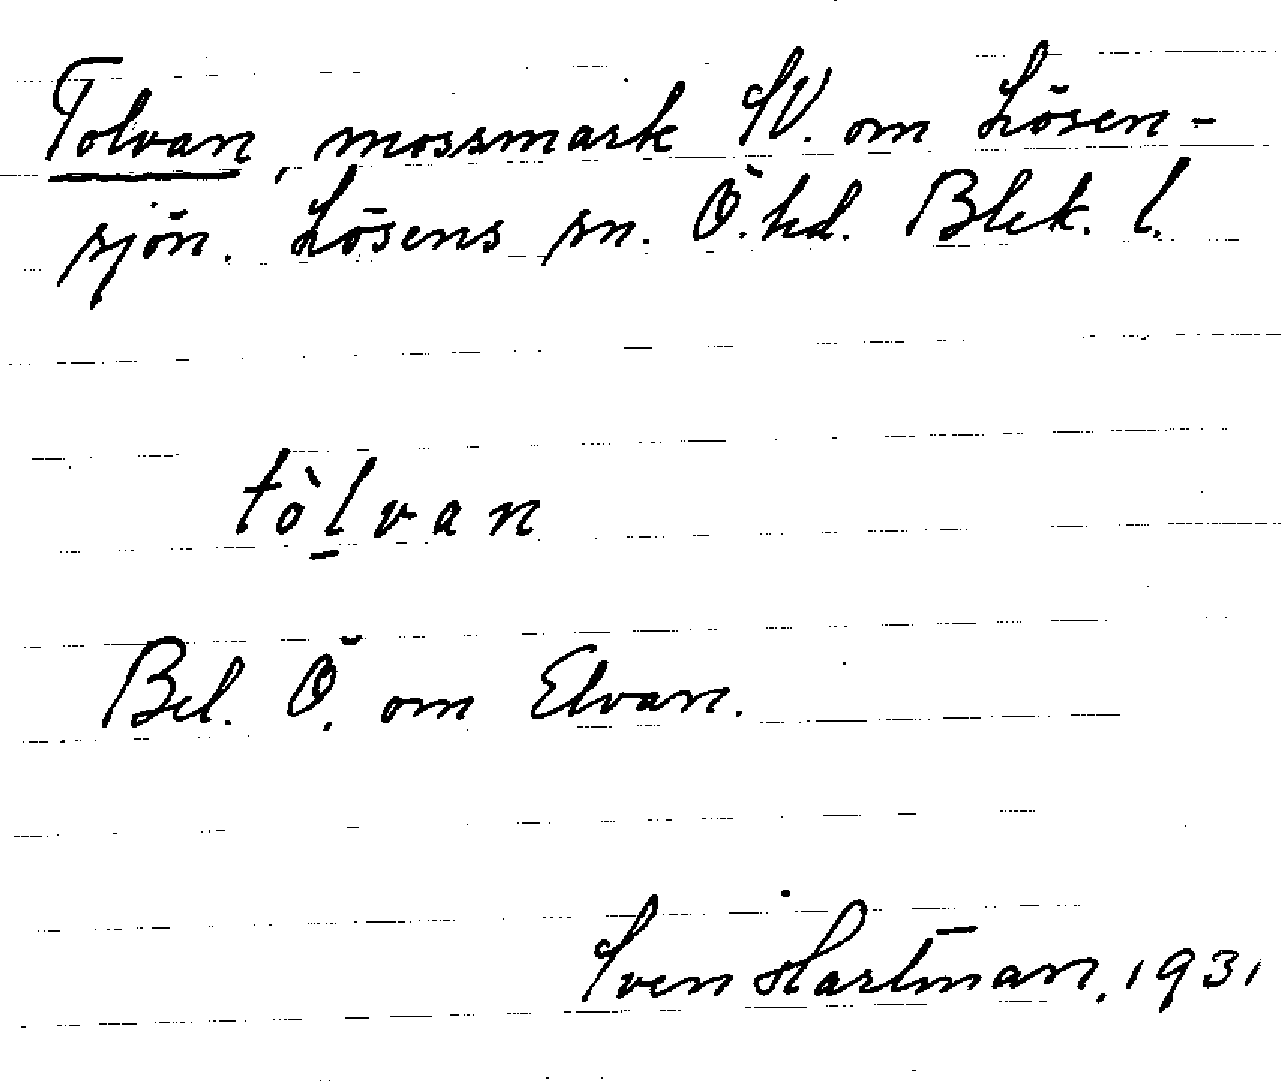 Tolvan, mossmark SV. om Lösen-
sjön. Lösens sn. Ö. hd. Blek. l.
tòl̠van
Bel. Ö. om Elvan.
Sven Hartman, 1931